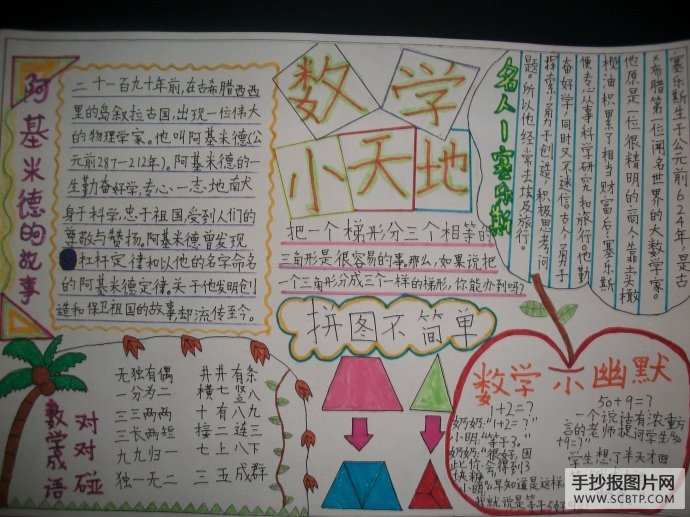 数学
小天地
阿基米德的故事
二十一百九十年前,在古希腊西西
里的岛叙拉古国,出现一位伟大
的物理学家。他叫阿基米德(公
元前287-212年)。阿基米德的一
生勤奋好学,专心一志,地献
身于科学,忠于祖国,受到人们的
尊敬与赞扬。阿基米德曾发现
杠杆定律和以他的名字命名
的阿基米德定律。关于他发明创
造和保卫祖国的故事却流传至今。
把一个梯形分三个相等的
三角形是很容易的事,那么,如果说把
一个三角形分成三个一样的梯形,你能办到吗?
名人—塞乐斯
塞乐斯生于公元前624年,是古
希腊第一位闻名世界的大数学家。
他原是一位很精明的商人,靠卖橄
榄油积累了相当财富后,塞乐斯
便专心从事科学研究和旅行。他勤
奋好学,同时又不迷信古人,勇于
探索,勇于创造,积极思考问
题。所以他经常去埃及旅行。
拼图不简单
数学成语
对对碰
无独有偶 井井有条
一分为二 横七竖八
三三两两 十有八九
三长两短 接二连三
九九归一 七上八下
独一无二 三五成群
数学小幽默
1+2=?
奶奶:"1+2=?"
小明:"等于3。"
奶奶:"很好,因
此你会得到3
块糖。"
小明:"早知道是这样,
我就说是等于5好了
50+9=?
一个说话有浓重方
言的老师提问学生:"50
+9=?"
学生想了半天才回
手抄报图片网
WWW.SCBTP.COM